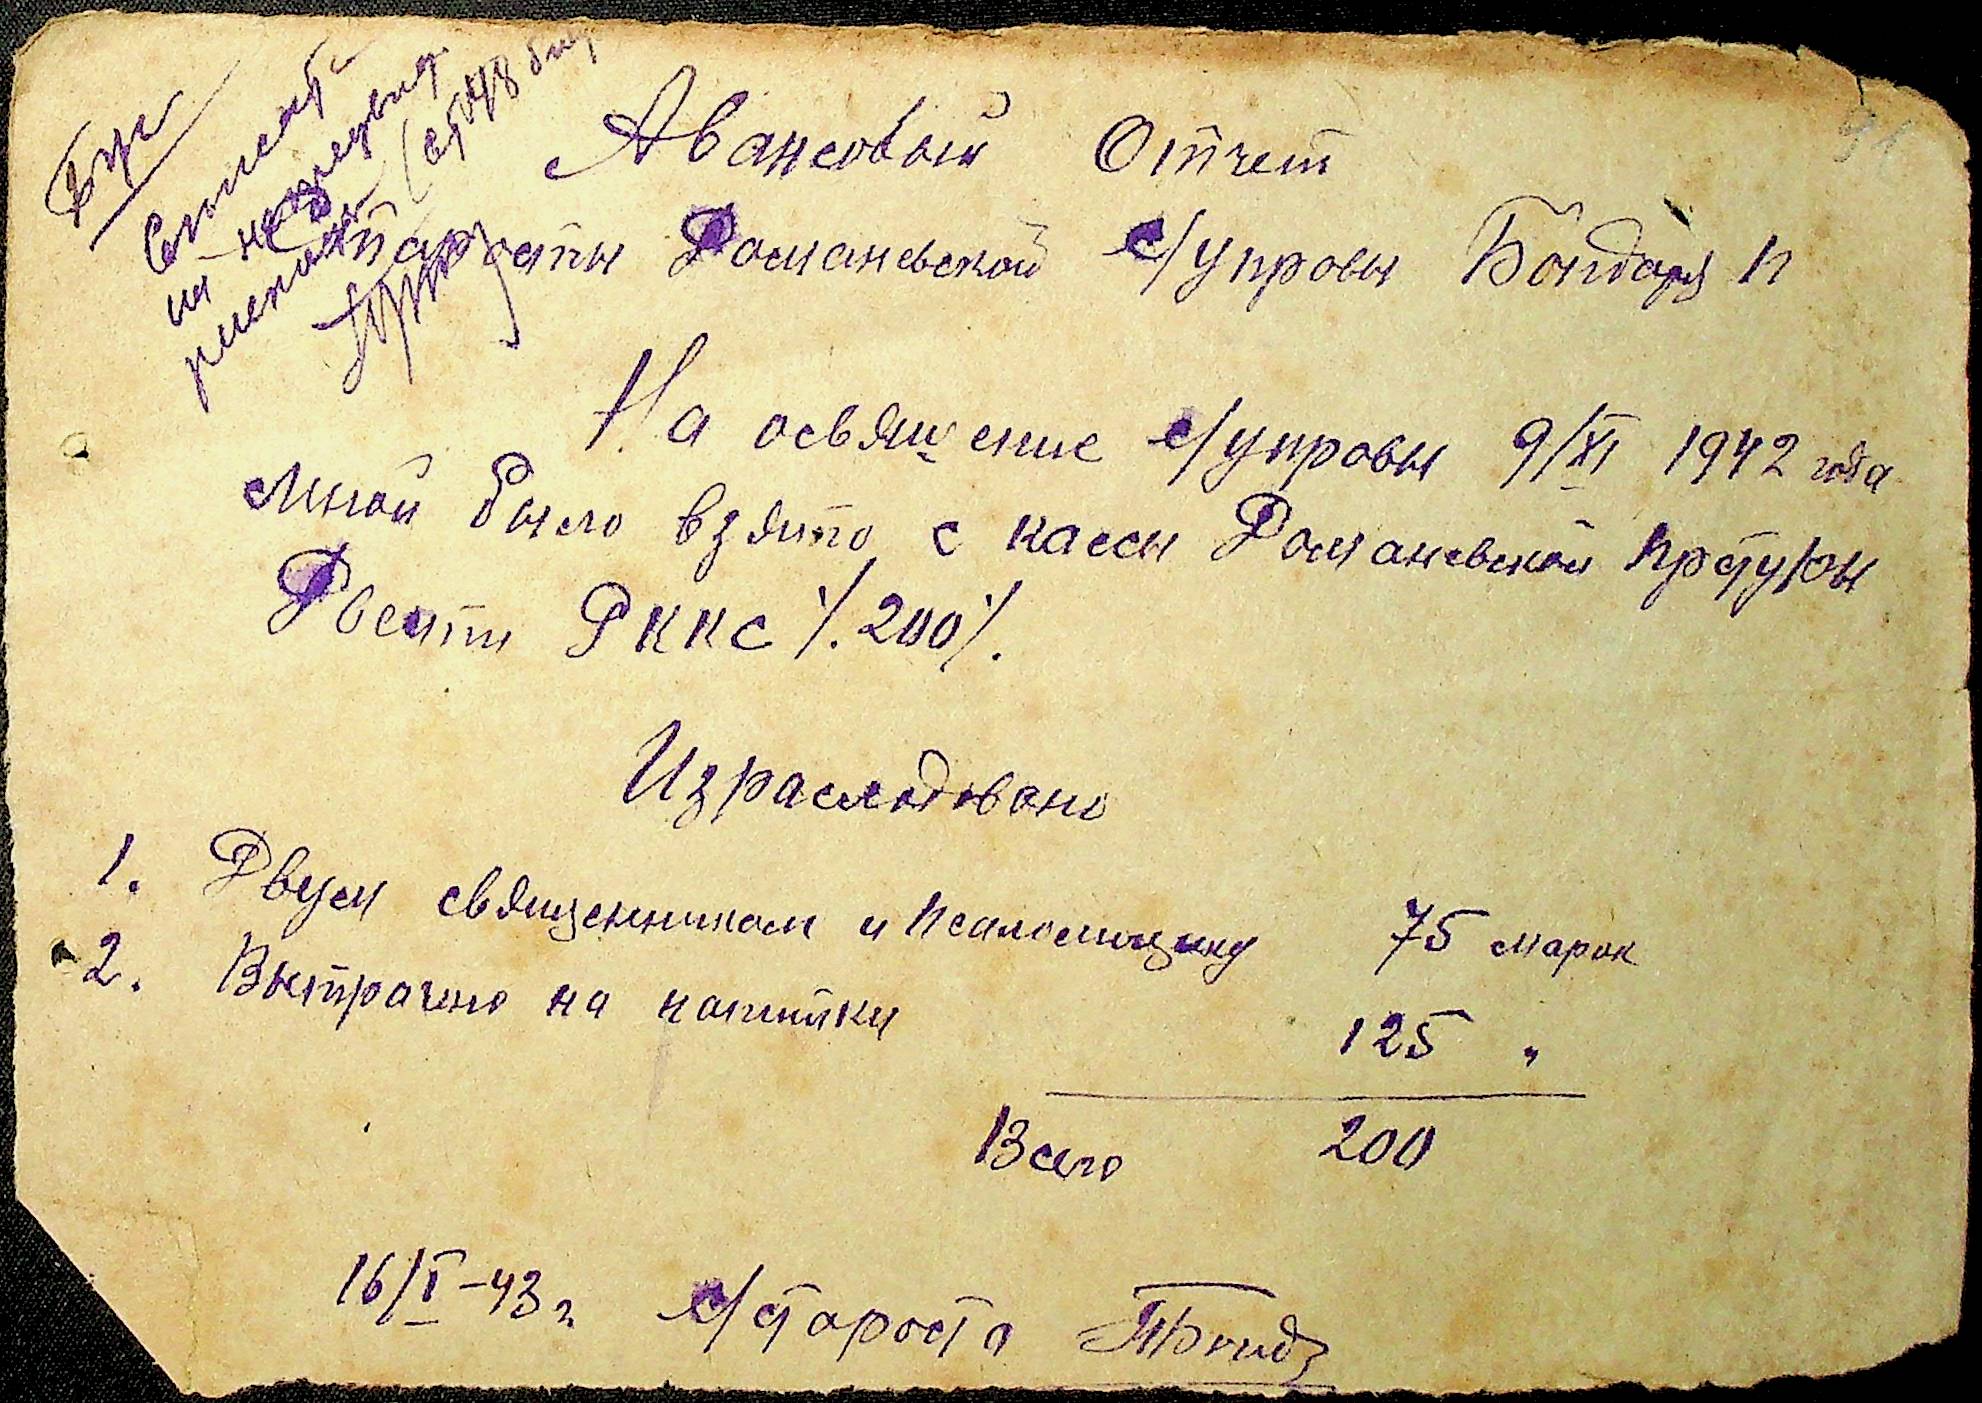 Бух
Списать
на непредвид.
расходы (ст 48 бюд
Авансовый Отчет
Старосты Романевской с/управы Бондаря П
На освящение с/управы 9/XI 1942 года
мной было взято с кассы Романевской
Двести РККС /.200/.
Израсходовано
1. Двум священникам и псаломщику 75 марок
2. Вытрачено на напитки 125 "
Всего 200
16/I-43 г. с/староста